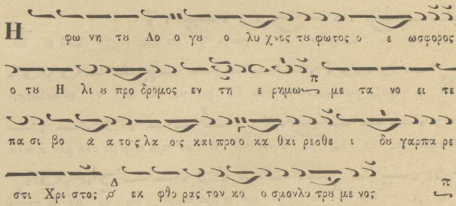 Η φω νη τȣ Λο ο γȣ ο λυ χνος τȣ φωτος ο ε ωσφορος
ο τȣ Η λι ȣ προ δρομος εν τη ε ρημω π με τα νο ει τε
πα σι βο α α τος λα οις και προ ο κα θαι ρεσθε ι δȣ γαρ πα ρε
στι Χρι στος Δ εκ φθο ρας τον κο ο σμον λυ τρȣ με νος π